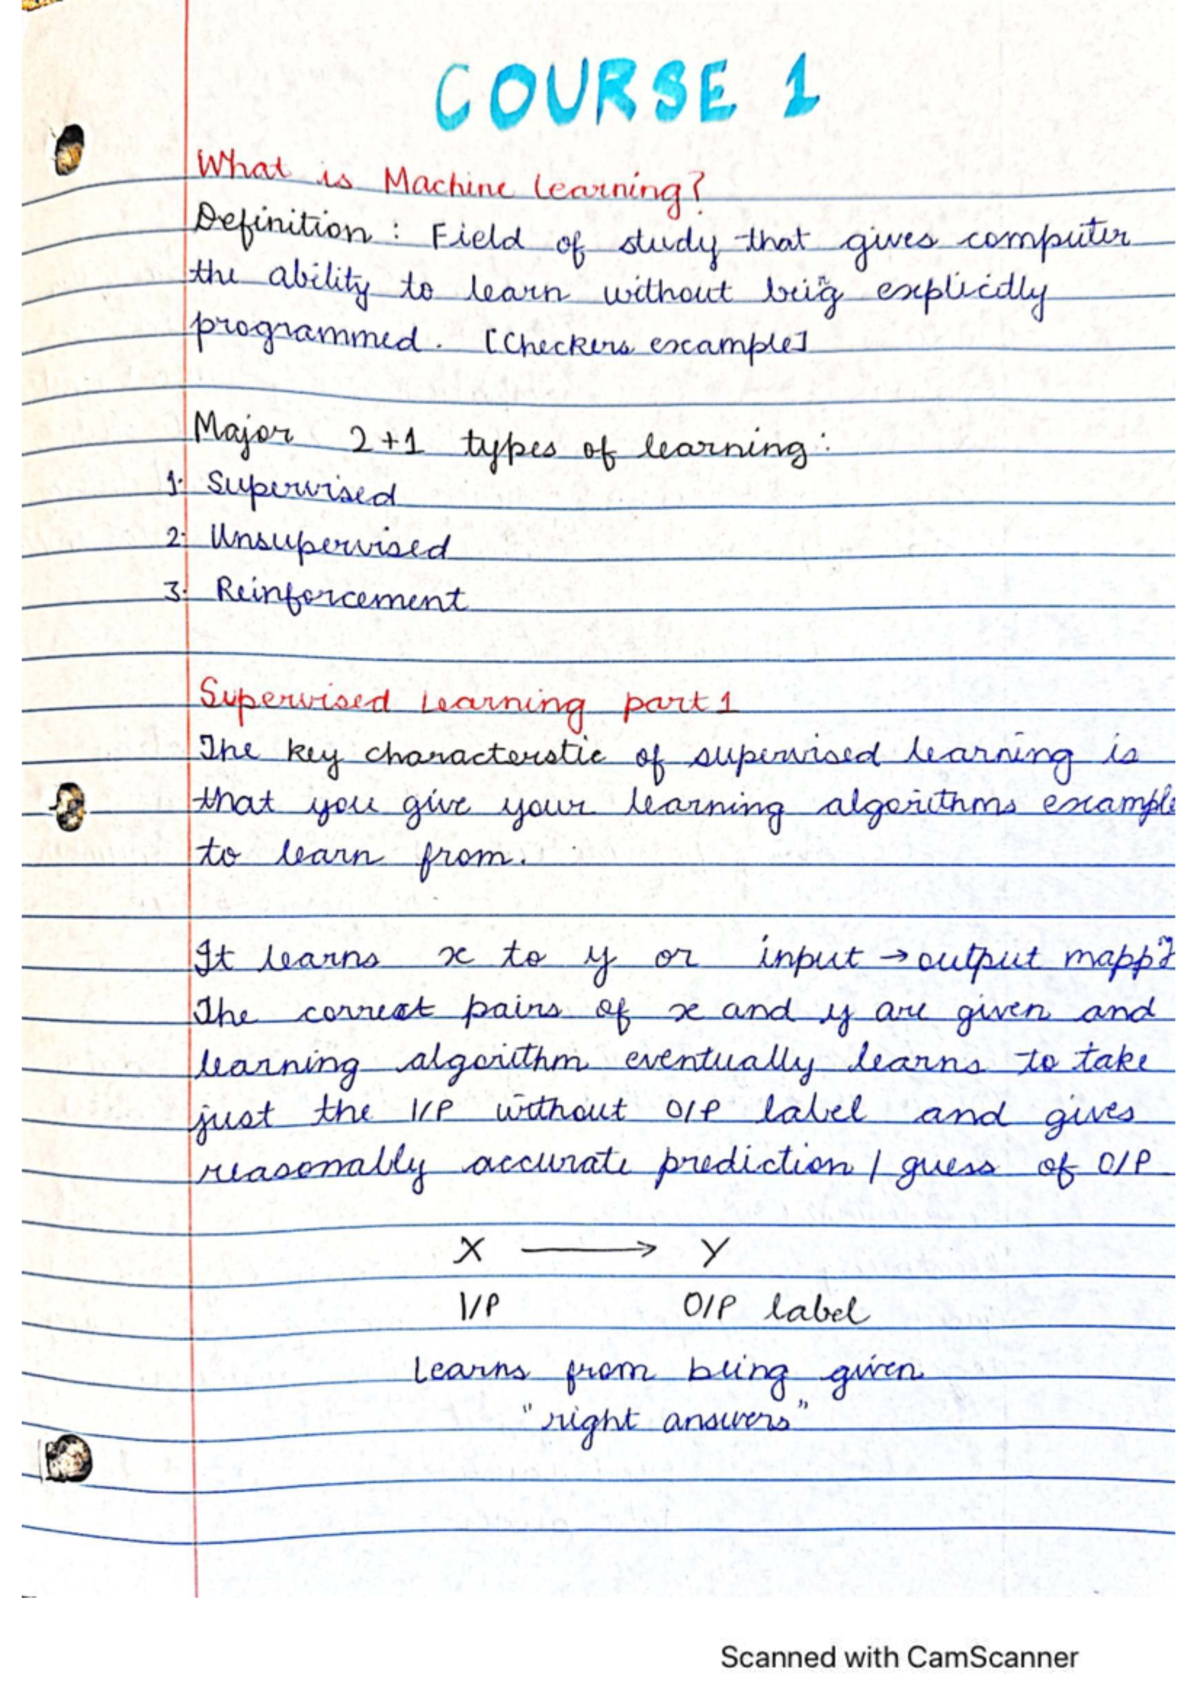 COURSE 1
What is Machine Learning?
Definition : Field of study that gives computer
the ability to learn without being explicidly
programmed. [Checkers example]
Major 2+1 types of learning:
1. Supervised
2. Unsupervised
3. Reinforcement
Supervised Learning part 1
The key characterstic of supervised learning is
that you give your learning algorithms example
to learn from.
It learns x to y or input → output
The correct pairs of x and y are given and
learning algorithm eventually learns to take
just the I/P without O/P label and gives
reasonably accurate prediction / guess of O/P
X → Y
I/P O/P label
Learns from being given
"right answers"
Scanned with CamScanner